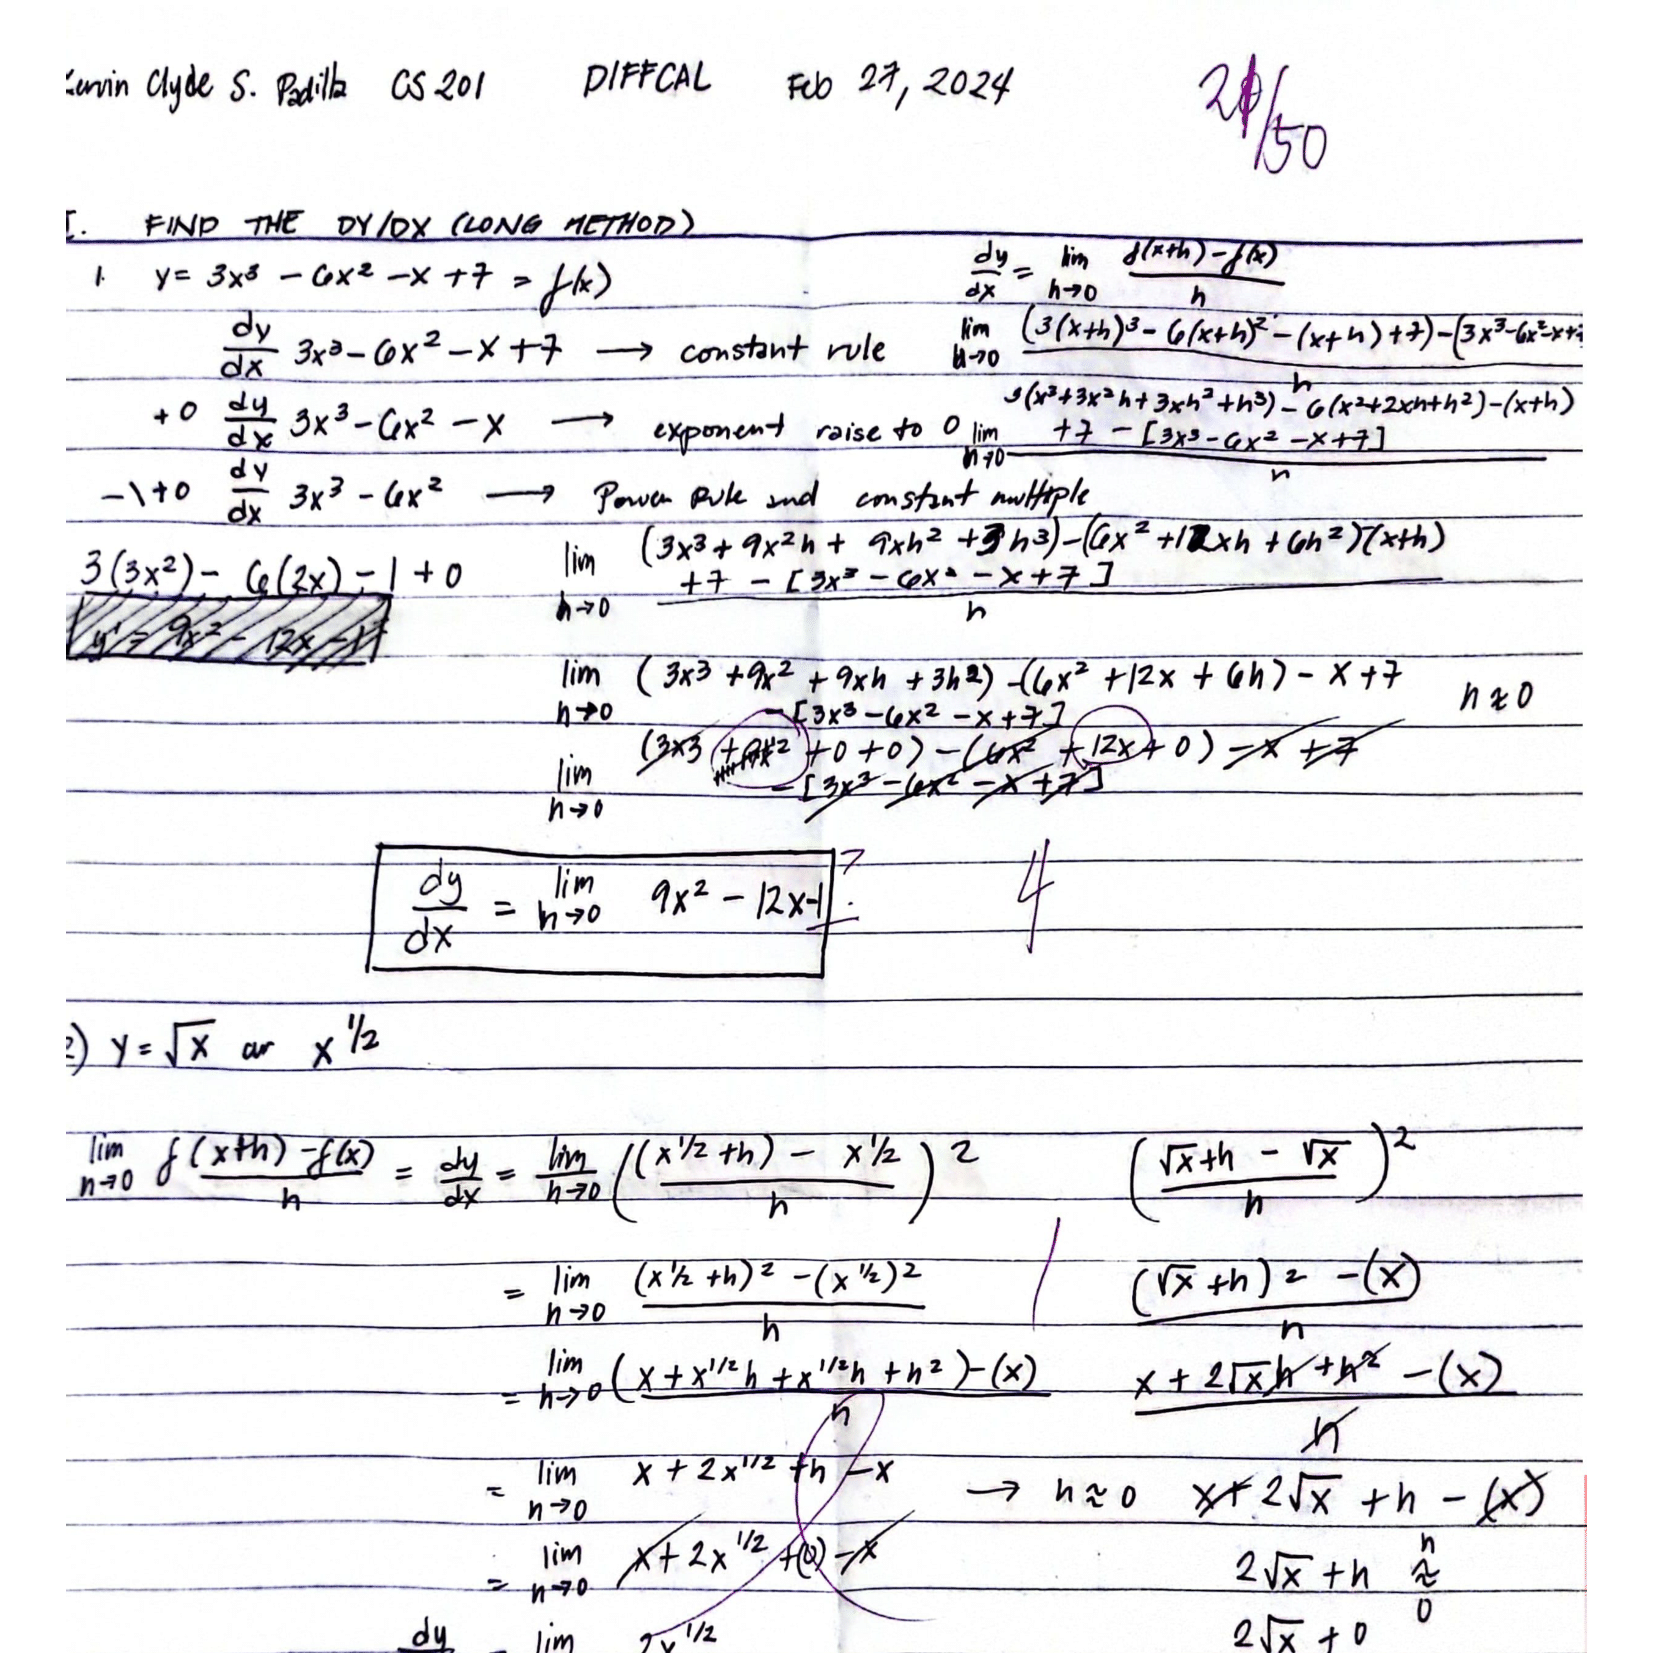 Clyde S. Padilla CS 201 DIFFCAL Feb 27, 2024
/50
I. FIND THE DY/DX (LONG METHOD)
1. y = 3x³ - 6x² - x + 7 = f(x)
dy/dx = lim h→0 (f(x+h) - f(x))/h
dy/dx 3x³ - 6x² - x + 7 → constant rule
lim h→0 ((3(x+h)³ - 6(x+h)² - (x+h) + 7) - (3x³ - 6x² - x + 7
h
+0 dy/dx 3x³ - 6x² - x → exponent raise to 0
lim h→0 (3(x³ + 3x²h + 3xh² + h³) - 6(x² + 2xh + h²) - (x+h) + 7 - [3x³ - 6x² - x + 7])/h
-1+0 dy/dx 3x³ - 6x² → Power Rule and constant multiple
3(3x²) - 6(2x) - 1 + 0
y' = 9x² - 12x - 1
lim h→0 ((3x³ + 9x²h + 9xh² + 3h³) - (6x² + 12xh + 6h²) - (x+h) + 7 - [3x³ - 6x² - x + 7])/h
lim h→0 (3x³ + 9x² + 9xh + 3h²) - (6x² + 12x + 6h) - x + 7 - [3x³ - 6x² - x + 7] h ≈ 0
lim h→0 (3x3 + 9x² + 0 + 0) - (6x² + 12x + 0) - x + 7 - [3x³ - 6x² - x + 7]
dy/dx = lim h→0 9x² - 12x - 1 ?
4
2) y = √x or x^1/2
lim h→0 (f(x+h) - f(x))/h = dy/dx = lim h→0 (((x^1/2 + h) - x^1/2)/h)²
((√x+h - √x)/h)²
= lim h→0 ((x^1/2 + h)² - (x^1/2)²)/h
((√x + h)² - (x))/h
= lim h→0 ((x + x^1/2h + x^1/2h + h²) - (x))/h
(x + 2√xh + h² - (x))/h
= lim h→0 x + 2x^1/2 + h - x → h ≈ 0
x + 2√x + h - (x)
= lim h→0 x + 2x^1/2 + (0) - x
2√x + h h ≈ 0
dy lim 2x^1/2
2√x + 0